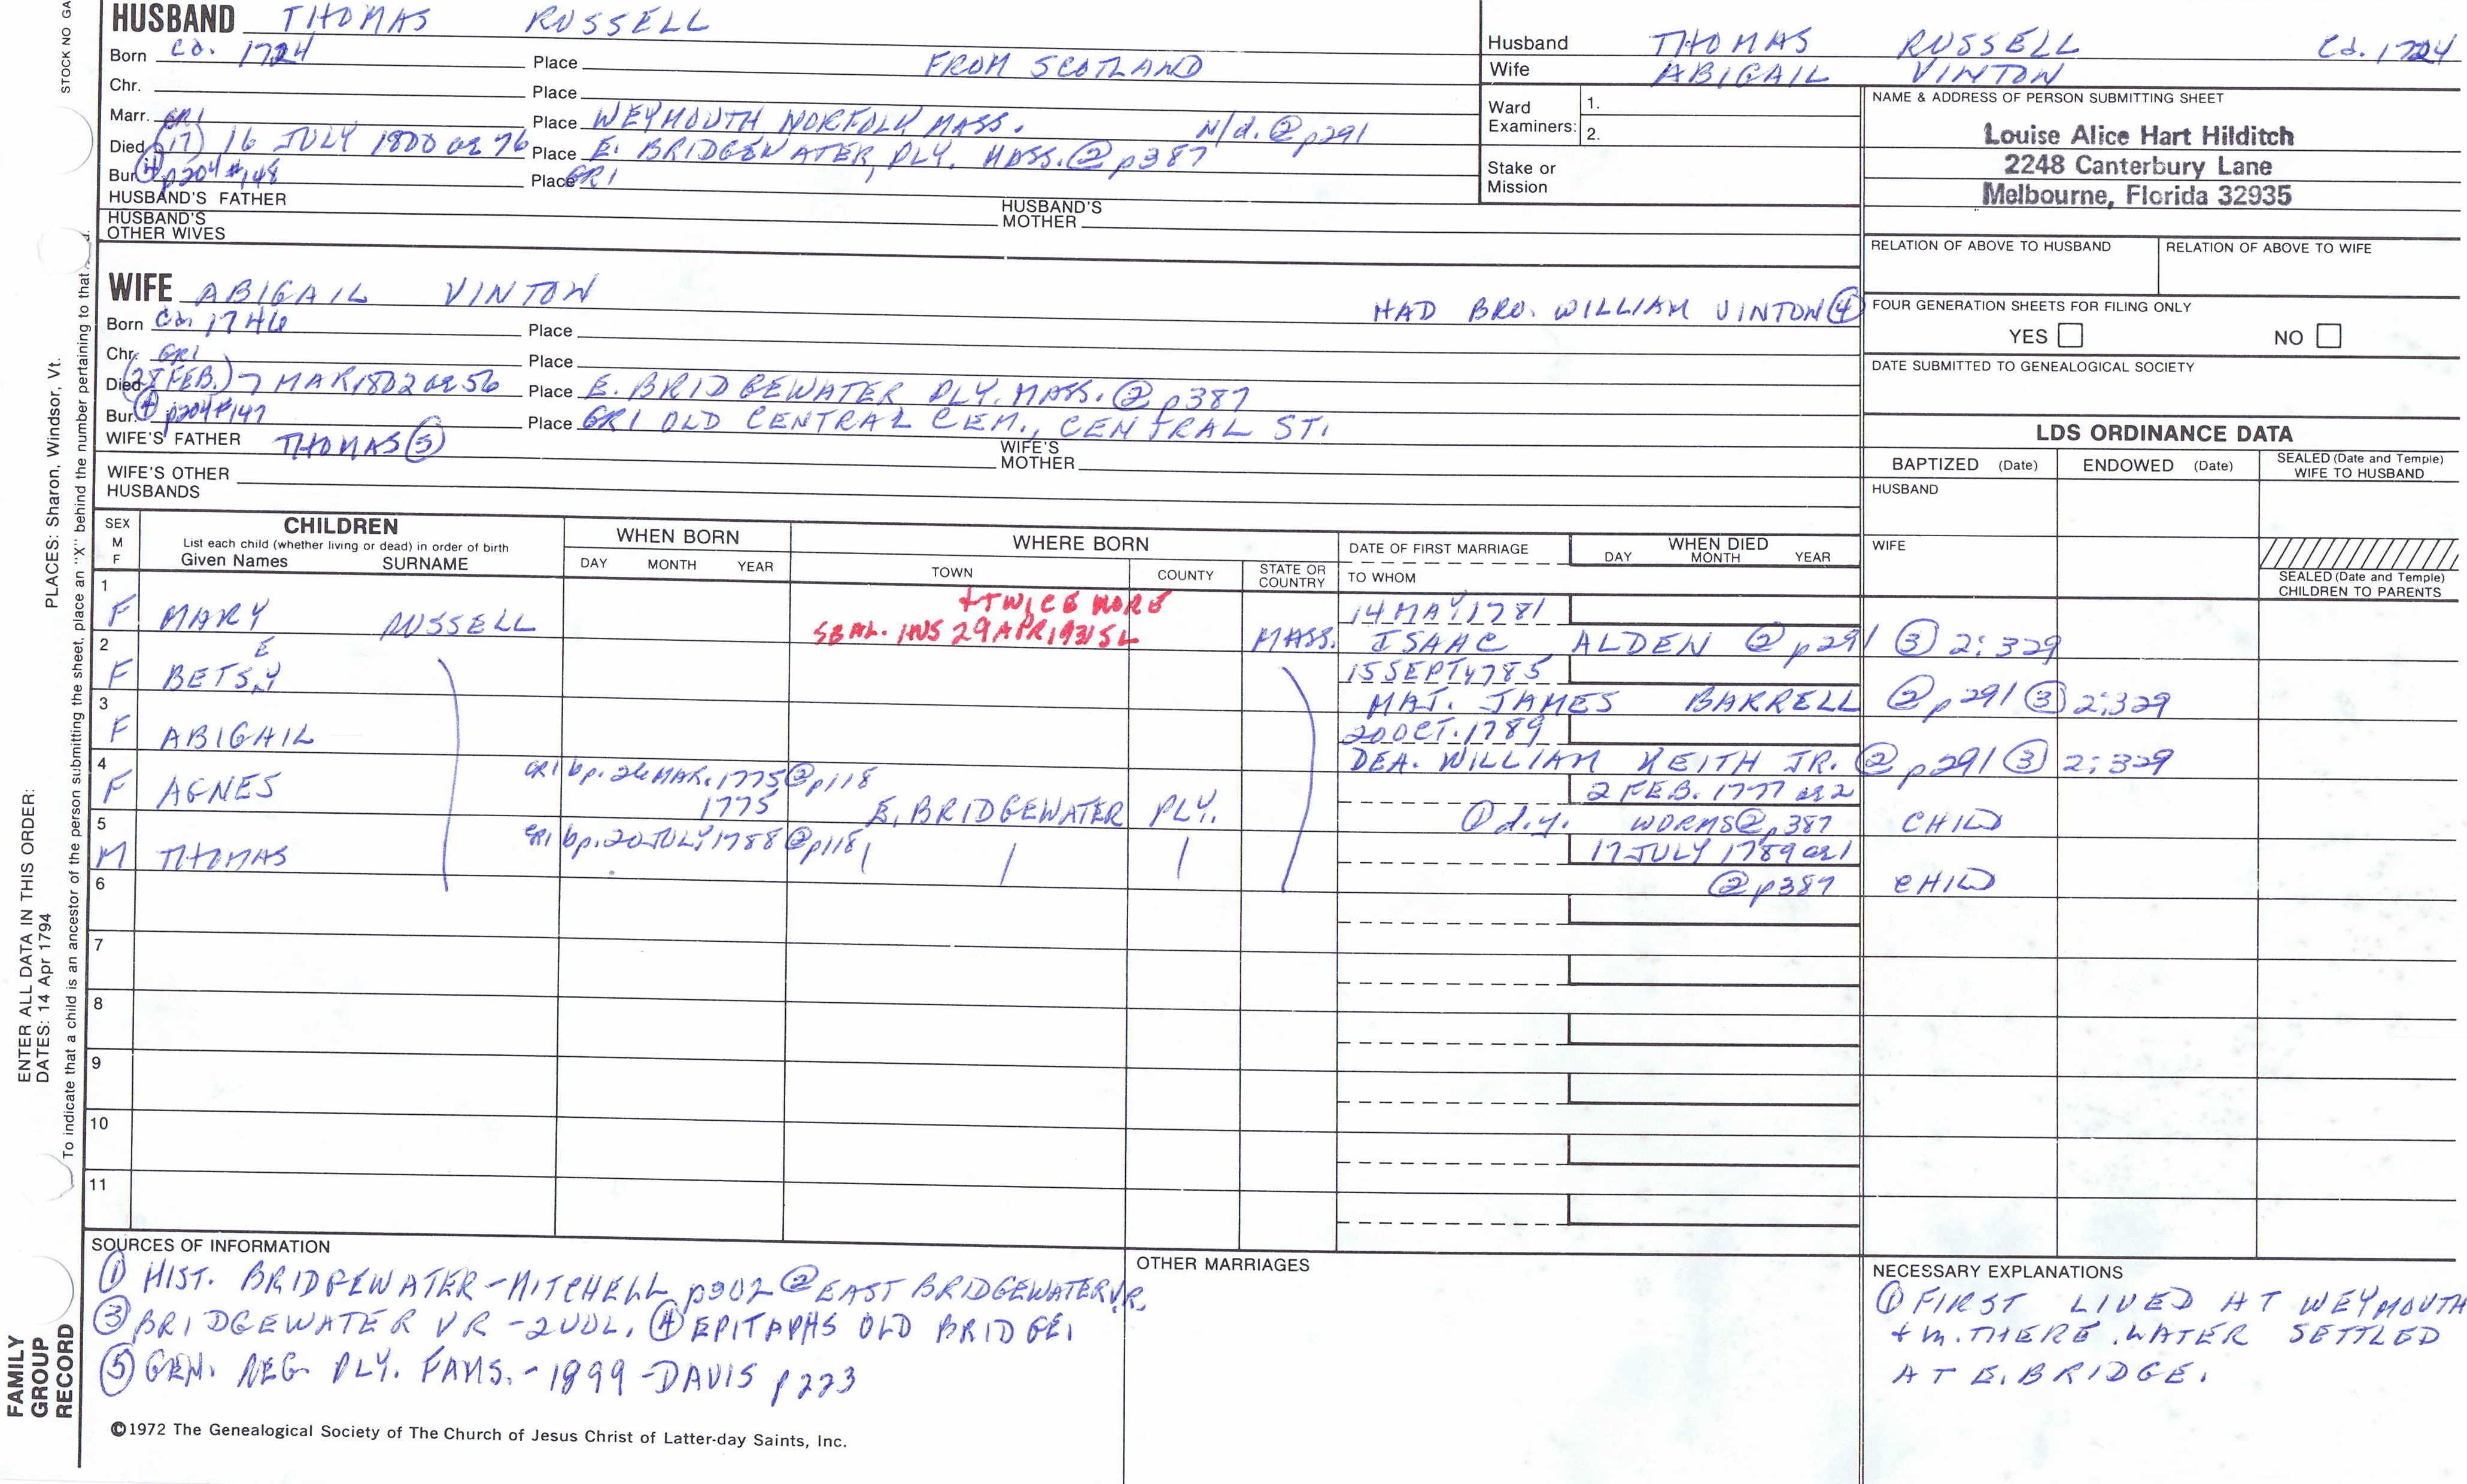 HUSBAND THOMAS RUSSELL
Born ca. 1724 Place FROM SCOTLAND
Chr. Place
Marr. Place WEYMOUTH NORFOLK MASS. N/d. ② p291
GR1
Died (17) 16 JULY 1800 ae 76 Place E. BRIDGEWATER, PLY. MASS. ② p387
Bur. ④ p204 #148 Place GR1
HUSBAND'S FATHER HUSBAND'S MOTHER
HUSBAND'S OTHER WIVES
WIFE ABIGAIL VINTON HAD BRO. WILLIAM VINTON ④
Born ca. 1746 Place
Chr. GR1 Place
Died (28 FEB.) 7 MAR 1802 ae 56 Place E. BRIDGEWATER PLY. MASS. ② p387
Bur. ④ p204 #147 Place GR1 OLD CENTRAL CEM., CENTRAL ST.
WIFE'S FATHER THOMAS ⑤ WIFE'S MOTHER
WIFE'S OTHER HUSBANDS
Husband THOMAS RUSSELL ca. 1724
Wife ABIGAIL VINTON
Ward Examiners: 1.
2.
Stake or Mission
NAME & ADDRESS OF PERSON SUBMITTING SHEET
Louise Alice Hart Hilditch
2248 Canterbury Lane
Melbourne, Florida 32935
RELATION OF ABOVE TO HUSBAND RELATION OF ABOVE TO WIFE
FOUR GENERATION SHEETS FOR FILING ONLY
YES NO
DATE SUBMITTED TO GENEALOGICAL SOCIETY
LDS ORDINANCE DATA
BAPTIZED (Date) ENDOWED (Date) SEALED (Date and Temple) WIFE TO HUSBAND
HUSBAND
WIFE
SEALED (Date and Temple) CHILDREN TO PARENTS
SEX M F CHILDREN WHEN BORN WHERE BORN DATE OF FIRST MARRIAGE WHEN DIED
List each child (whether living or dead) in order of birth
Given Names SURNAME DAY MONTH YEAR TOWN COUNTY STATE OR COUNTRY TO WHOM DAY MONTH YEAR
1 +TWICE MORE 14 MAY 1781
F MARY RUSSELL SEAL. INS 29 APR 1931 SL MASS. ISAAC ALDEN ② p291 ③ 2:329
2 E 15 SEPT 1785
F BETSY MAJ. JAMES BARRELL ② p291 ③ 2:329
3 20 OCT. 1789
F ABIGAIL DEA. WILLIAM KEITH JR. ② p291 ③ 2:329
4 CR1 bp. 26 MAR. 1775 ② p118 2 FEB. 1777 ae 2
F AGNES 1775 E. BRIDGEWATER PLY. ① d.y. WORMS ② p387 CHILD
5 CR1 bp. 20 JULY 1788 ② p118 17 JULY 1789 ae 1
M THOMAS ② p387 CHILD
6
7
8
9
10
11
SOURCES OF INFORMATION
① HIST. BRIDGEWATER-MITCHELL p302 ② EAST BRIDGEWATER V.R.
③ BRIDGEWATER VR - 2 VOL. ④ EPITAPHS OLD BRIDGE.
⑤ GEN. REG. PLY. FAMS. - 1899 - DAVIS p223
OTHER MARRIAGES
NECESSARY EXPLANATIONS
① FIRST LIVED AT WEYMOUTH
+ m. THERE. LATER SETTLED
AT E. BRIDGE.
©1972 The Genealogical Society of The Church of Jesus Christ of Latter-day Saints, Inc.
STOCK NO GA
PLACES: Sharon, Windsor, Vt.
To indicate that a child is an ancestor of the person submitting the sheet, place an "X" behind the number pertaining to that
ENTER ALL DATA IN THIS ORDER:
DATES: 14 Apr 1794
FAMILY
GROUP
RECORD